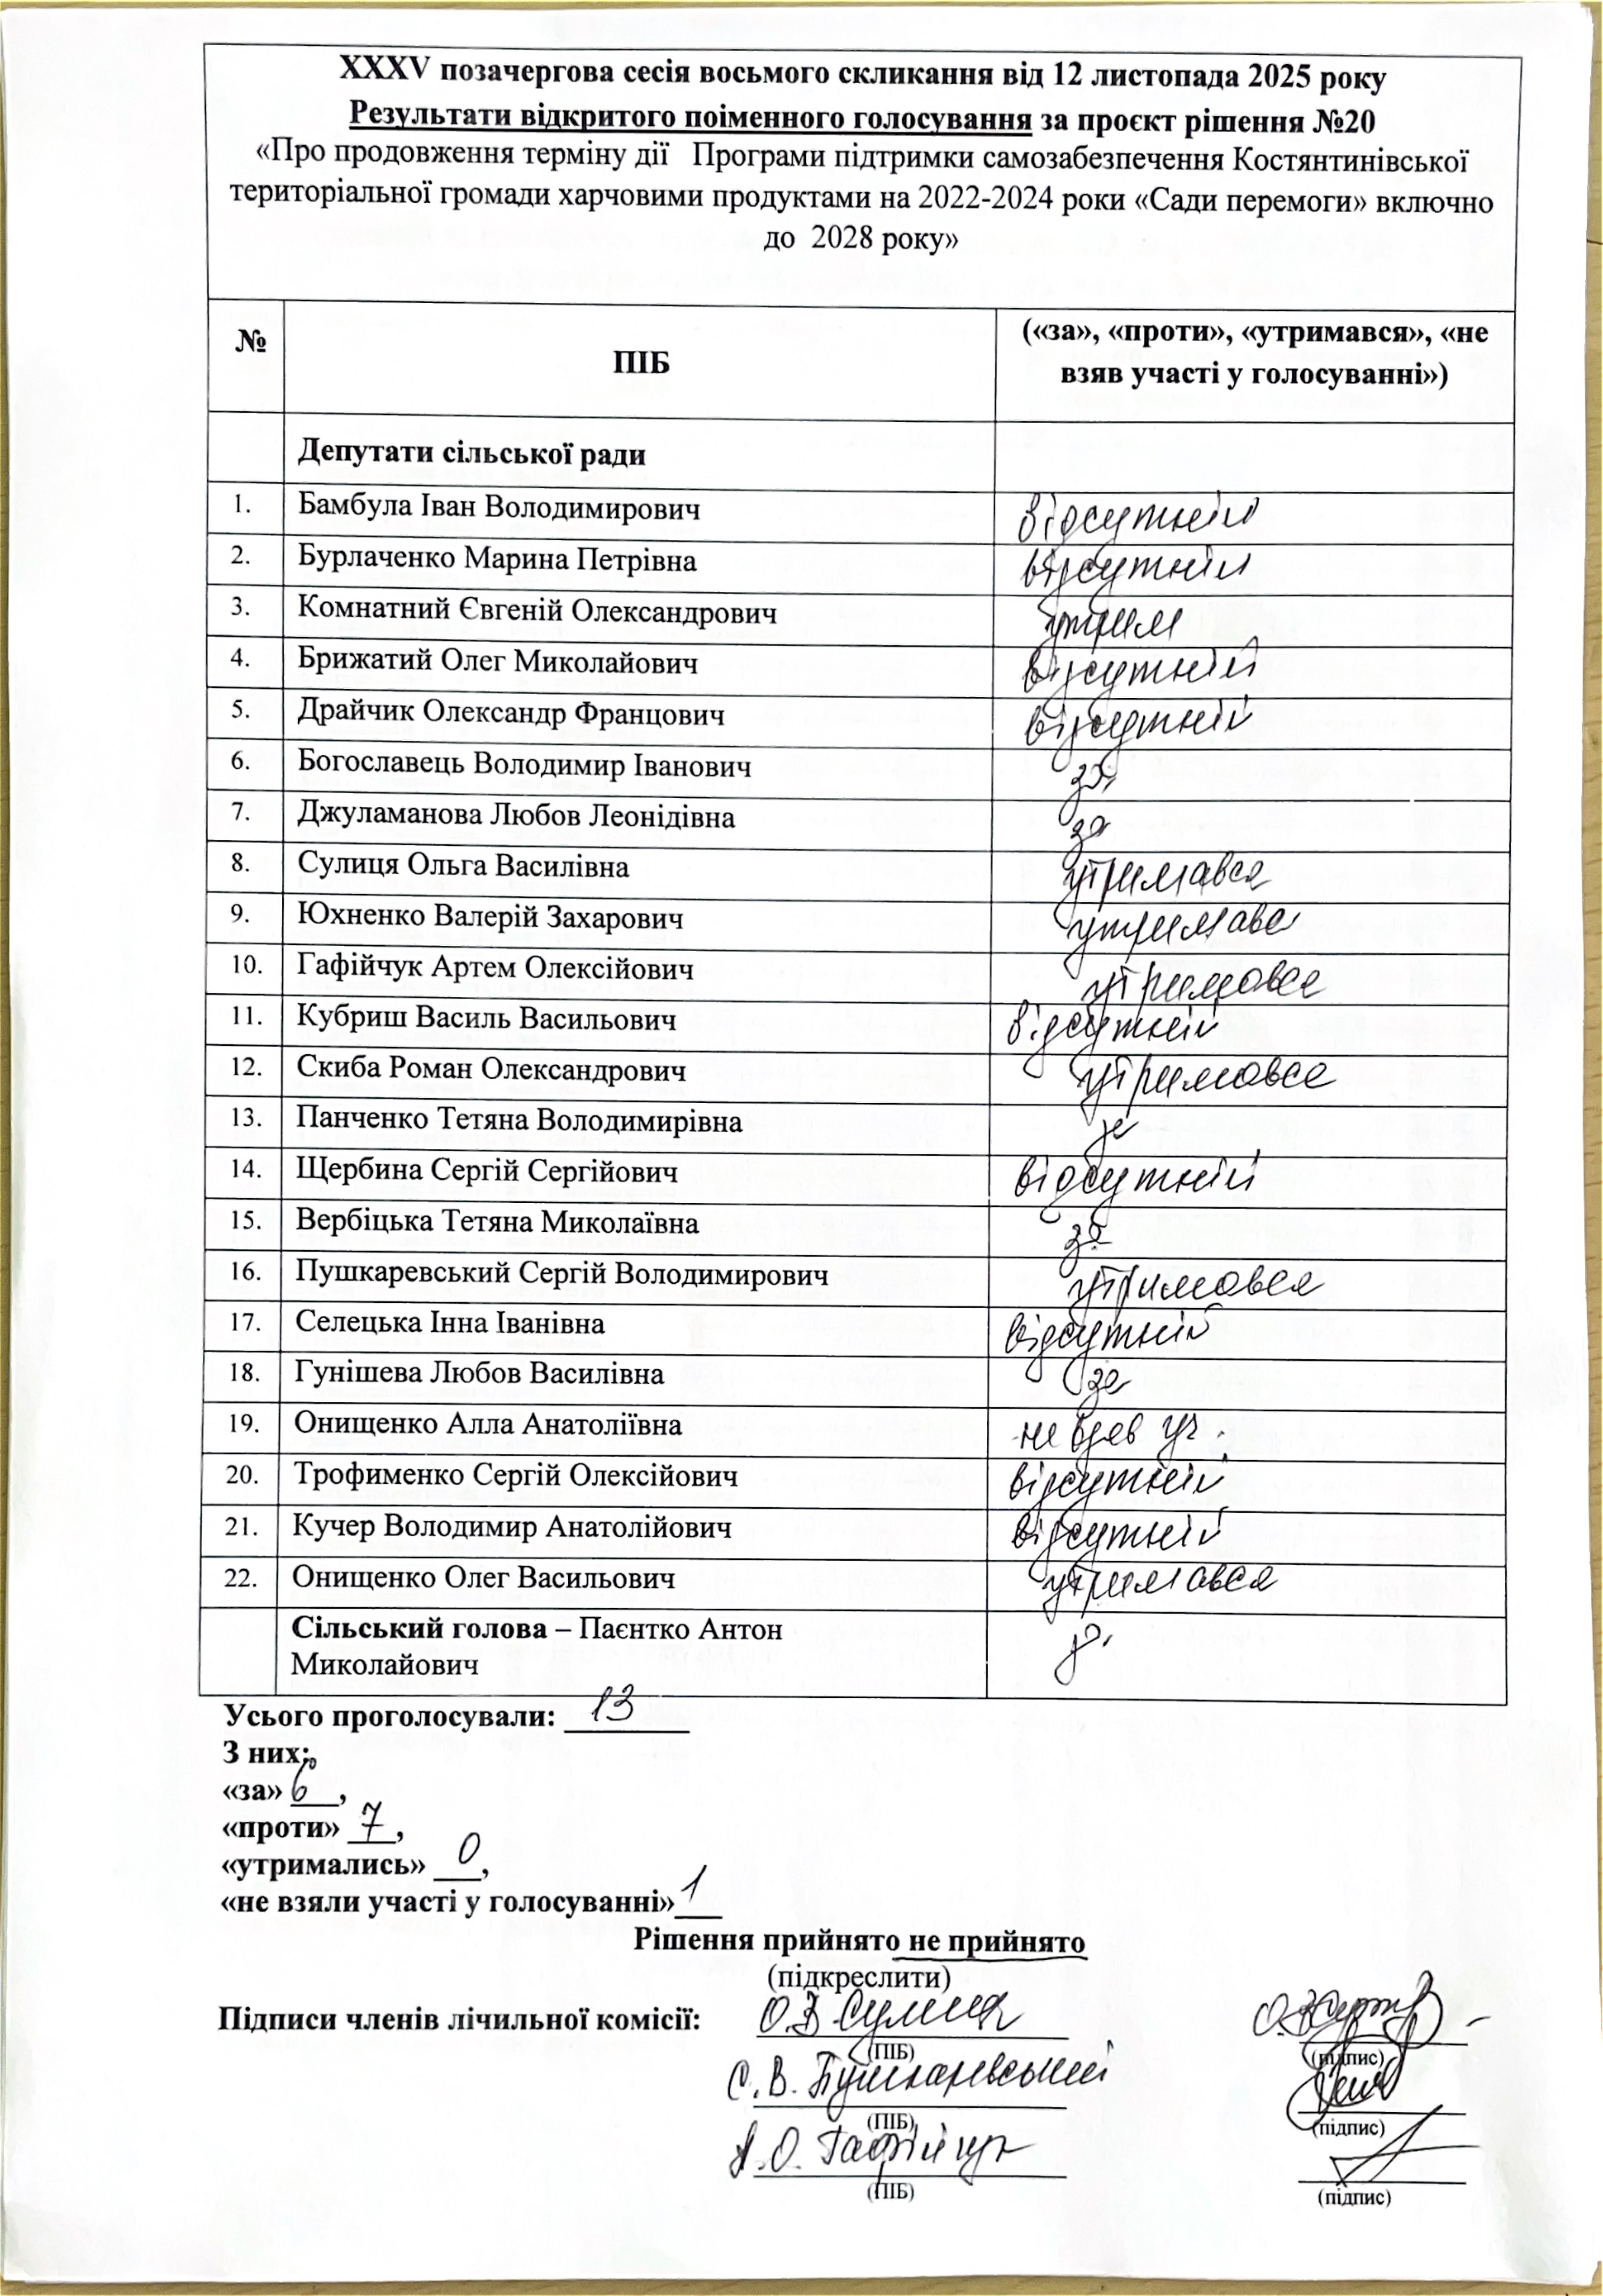 XXXV позачергова сесія восьмого скликання від 12 листопада 2025 року
Результати відкритого поіменного голосування за проєкт рішення №20
«Про продовження терміну дії Програми підтримки самозабезпечення Костянтинівської
територіальної громади харчовими продуктами на 2022-2024 роки «Сади перемоги» включно
до 2028 року»
№ ПІБ («за», «проти», «утримався», «не
взяв участі у голосуванні»)
Депутати сільської ради
1. Бамбула Іван Володимирович відсутній
2. Бурлаченко Марина Петрівна відсутній
3. Комнатний Євгеній Олександрович утрим
4. Брижатий Олег Миколайович відсутній
5. Драйчик Олександр Францович відсутній
6. Богославець Володимир Іванович за
7. Джуламанова Любов Леонідівна за
8. Сулиця Ольга Василівна утримався
9. Юхненко Валерій Захарович утримавс
10. Гафійчук Артем Олексійович утримався
11. Кубриш Василь Васильович відсутній
12. Скиба Роман Олександрович утримався
13. Панченко Тетяна Володимирівна за
14. Щербина Сергій Сергійович відсутній
15. Вербіцька Тетяна Миколаївна за
16. Пушкаревський Сергій Володимирович утримався
17. Селецька Інна Іванівна відсутній
18. Гунішева Любов Василівна за
19. Онищенко Алла Анатоліївна не взяв уч.
20. Трофименко Сергій Олексійович відсутній
21. Кучер Володимир Анатолійович відсутній
22. Онищенко Олег Васильович утримався
Сільський голова – Паєнтко Антон
Миколайович за
Усього проголосували: 13
З них:
«за» 6,
«проти» 7,
«утримались» 0,
«не взяли участі у голосуванні» 1
Рішення прийнято не прийнято
(підкреслити)
Підписи членів лічильної комісії: О.В Сулиця
(ПІБ) (підпис)
С. В. Пушкаревський
(ПІБ) (підпис)
А. О. Гафійчук
(ПІБ) (підпис)